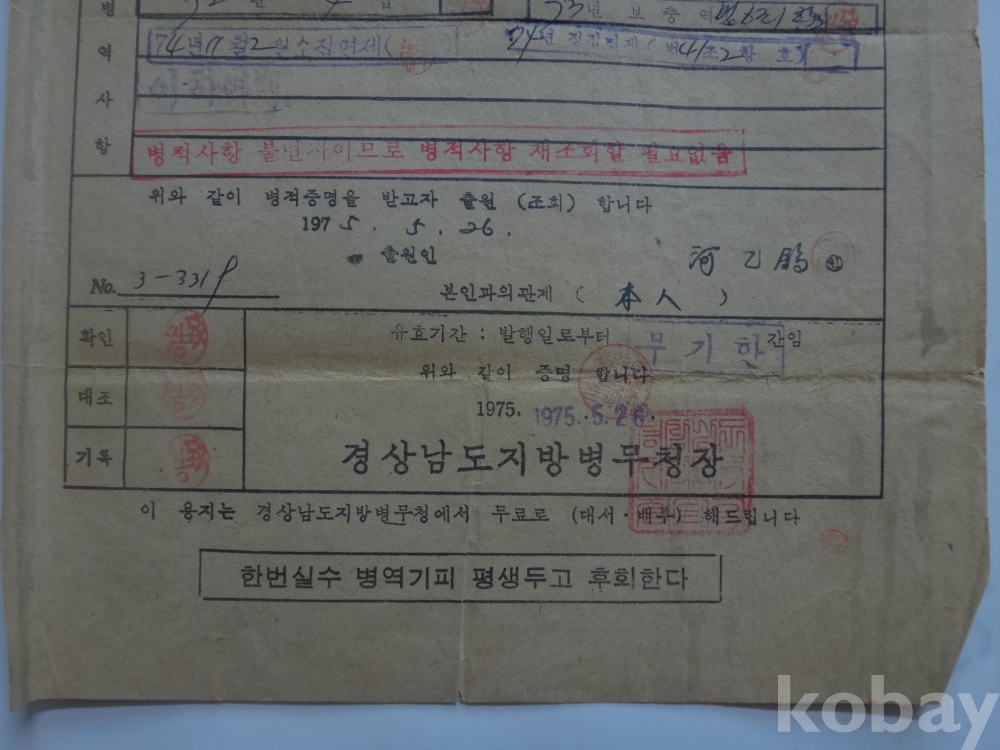 병역사항
74年 11월 2일 소집면제(
74년 징집면제(
병적사항 불변자이므로 병적사항 재조회할 필요없음
위와 같이 병적증명을 받고자 출원 (조회) 합니다
1975. 5. 26.
출원인
河乙鶴 ㊞
No. 3-3319
본인과의관계 ( 本人 )
확인
유효기간 : 발행일로부터 무기한 간임
위와 같이 증명 합니다
대조
1975. 1975. 5. 26.
기록
경상남도지방병무청장
이 용지는 경상남도지방병무청에서 무료로 (대서·배부) 해드립니다
한번실수 병역기피 평생두고 후회한다
kobay